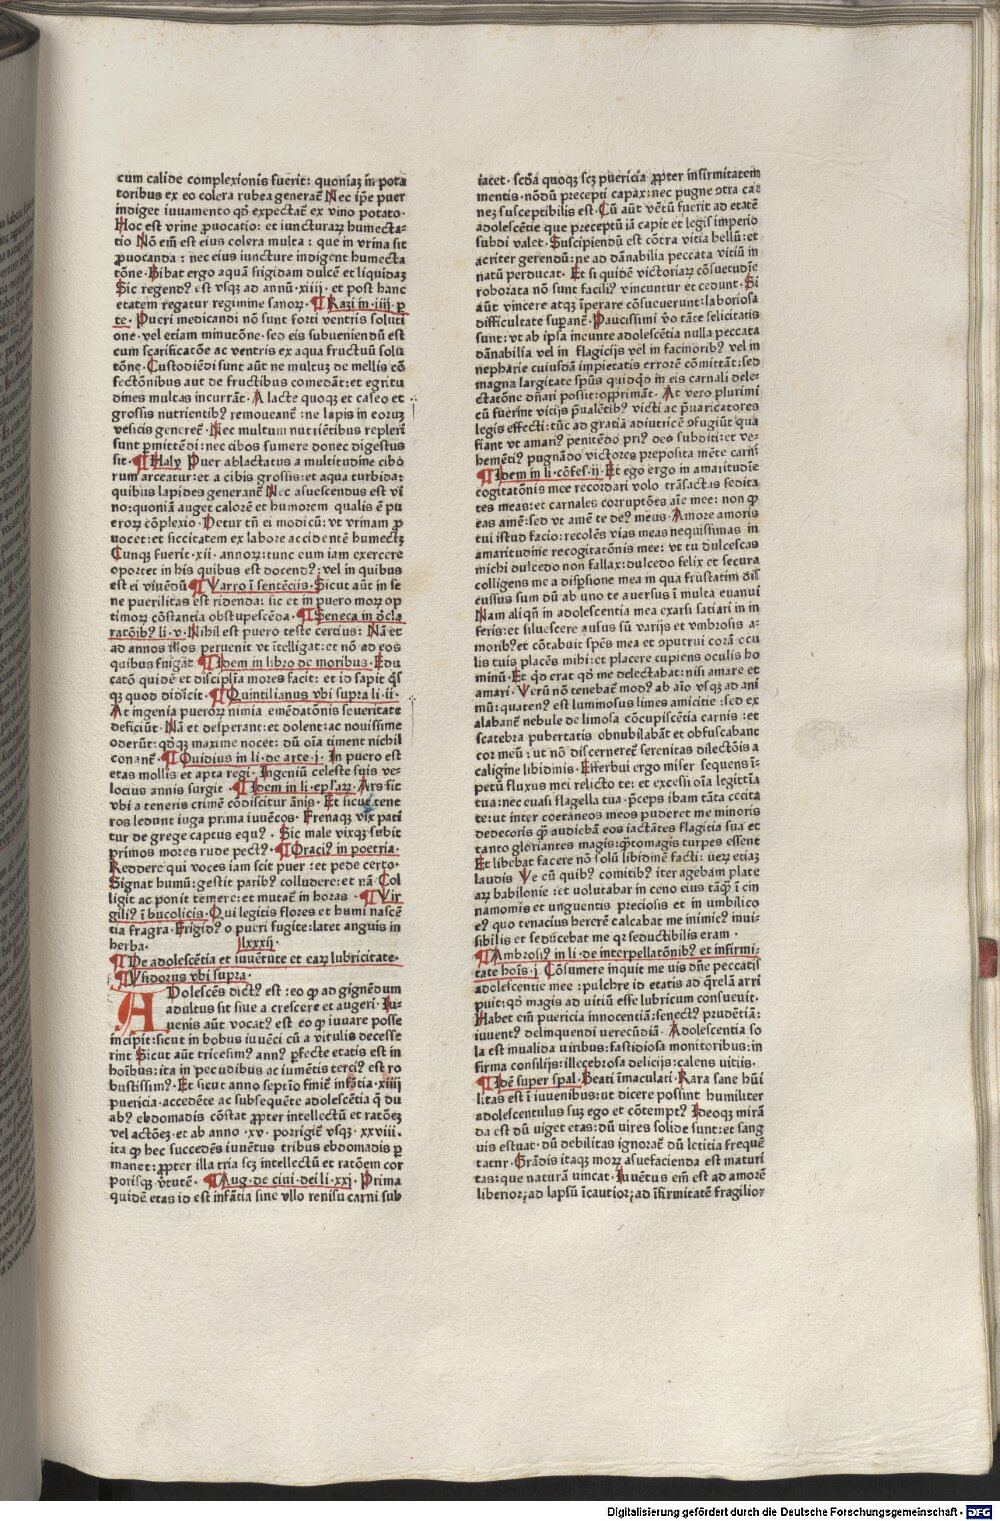 cum calide complexionis fuerit: quoniaz in pota
toribus ex eo colera rubea generat̄ Nec ip̄e puer
indiget iuuamento qd̄ expectat̄ ex vino potato·
Hoc est vrine ꝓuocatio: et iuncturaꝝ humecta-
tio Nō em̄ est eius colera multa: que in vrina sit
ꝓuocanda: nec eius iuncture indigent humecta
tōne· Bibat ergo aquā frigidam dulcē et liquidaz
Sic regend⁹ est vsqꝫ ad annū·xiiij·et post hanc
etatem regatur regimine sanoꝝ·¶Razi in·iiij·p̄
te· Pueri medicandi nō sunt forti ventris soluti
one·vel etiam minutōne·sed eis subueniendū est
cum scarificatōe ac ventris ex aqua fructuū solu
tōne· Custodiēdi sunt aūt ne multuꝫ de mellis cō
fectōnibus aut de fructibus comedāt: et egritu
dines multas incurrāt· A lacte quoqꝫ et caseo et
grossis nutrientib⁹ remoueant̄: ne lapis in eoruꝫ
vesicis generet̄· Nec multum nutriētibus repleri
sunt ꝑmittēdi: nec cibos sumere donec digestus
sit·¶Haly Puer ablactatus a multitudine cibo
rum arceatur: et a cibis grossis: et aqua turbida:
quibus lapides generant̄ Nec assuescendus est vi
no: quoniā auget calorē et humorem qualis ē pu
eroꝝ cōplexio· Detur tn̄ ei modicū: vt vrinam ꝓ
uocet: et siccitatem ex labore accidentē humectꝫ
Cunqꝫ fuerit·xii·annoꝝ: tunc eum iam exercere
oportet in his quibus est docend⁹: vel in quibus
est ei viuēdū ¶Varro ī sentēciis· Sicut aūt in se
ne puerilitas est ridenda: sic et in puero moꝝ op
timoꝝ cōstantia obstupescēda·¶Seneca in d̄cla
ratōib⁹ li·v· Nihil est puero teste certius: Nā et
ad annos illos peruenit vt ītelligat: et nō ad eos
quibus fingat ¶Idem in libro de moribus· Edu
catō quidē et disciplīa mores facit: et id sapit q̄s
qꝫ quod didicit·¶Quintilianus vbi supra li·ii·
At ingenia pueroꝝ nimia emēdatōnis seueritate
deficiūt· Nā et desperant: et dolent: ac nouissime
oderūt: qd̄qꝫ maxime nocet: dū oīa timent nichil
conant̄·¶Ouidius in li·de arte·j· In puero est
etas mollis et apta regi· Ingeniū celeste suis ve-
locius annis surgit·¶Idem in li·ep̄laꝝ· Ars sit
vbi a teneris crimē cōdiscitur ānis· Et sicut tene
ros ledunt iuga prima iuuēcos· Frenaqꝫ vix pati
tur de grege captus equ⁹· Sic male vixqꝫ subit
primos mores rude pect⁹·¶Oraci⁹ in poetria·
Reddere qui voces iam scit puer: et pede certo·
Signat humū: gestit parib⁹ colludere: et nā Col
ligit ac ponit temere: et mutat̄ in horas·¶Vir
gili⁹ ī bucolicis· Qui legitis flores et humi nascē
tia fragra· Frigid⁹ o pueri fugite: latet anguis in
herba· lxxxij·
¶De adolescētia et iuuētute et eaꝝ lubricitate·
¶Ysidorus vbi supra·
Adolescēs dict⁹ est: eo ꝙ ad gignēdum
adultus sit siue a crescere et augeri· Iu-
uenis aūt vocat⁹ est eo ꝙ iuuare posse
incipit: sicut in bobus iuuēci cū a vitulis decesse
rint Sicut aūt tricesim⁹ ann⁹ ꝑfecte etatis est in
hoībus: ita in pecudibus ac iumētis terci⁹ est ro
bustissim⁹· Et sicut anno septīo finit̄ infātia·xiiij
puericia·accedēte ac subsequēte adolescētia q̄ du
ab⁹ ebdomadis cōstat ꝓpter intellectū et ratōeꝫ
vel actōeꝫ·et ab anno·xv·porrigit̄ vsqꝫ·xxviii·
ita ꝙ hec succedēs iuuētus tribus ebdomadis ꝑ
manet: ꝓpter illa tria scꝫ intellectū et ratōem cor
porisqꝫ v̄tutē·¶Aug·de ciui·dei li·xxj· Prima
quidē etas id est infātia sine vllo renisu carni sub
iacet·scd̄a quoqꝫ scꝫ puericia ꝓpter infirmitatem
mentis·nōdū precepti capax: nec pugne ↄtra car
neꝫ susceptibilis est· Cū aūt vētū fuerit ad etatē
adolescētie que preceptū iā capit et legis imperio
subdi valet· Suscipiendū est cōtra vitia bellū: et
acriter gerendū: ne ad dānabilia peccata vitiū in
natū perducat· Et si quidē victoriaꝝ cōsuetudīe
roborata nō sunt facili⁹ vincuntur et cedunt· Si
aūt vincere atqꝫ īperare cōsueuerunt: laboriosa
difficultate suꝑant̄· Paucissimi v̄o tāte felicitatis
sunt: vt ab ipsa ineunte adolescētia nulla peccata
dānabilia vel in flagicijs vel in facinorib⁹ vel in
nepharie cuiusdā impietatis errorē cōmittāt: sed
magna largitate sp̄us quidqd̄ in eis carnali dele-
ctatōne dn̄ari possit: opprimāt· At vero plurimi
cū fuerint vitijs p̄ualētib⁹ victi ac p̄uaricatores
legis effecti: tūc ad gratiā adiutricē ↄfugiūt qua
fiant vt amari⁹ penitēdo pri⁹ deo subditi: et ve-
hemēti⁹ pugnādo victores preposita mēte carni
¶Idem in li·cōfes·ii· Et ego ergo in amaritudīe
cogitatōnis mee recordari volo trāsactas fedita
tes meas: et carnales corruptōes aīe mee: non ꝙ
eas amē: sed vt amē te de⁹ meus· Amore amoris
tui istud facio: recolēs vias meas nequissimas in
amaritudine recogitatōnis mee: vt tu dulcescas
michi dulcedo non fallax: dulcedo felix et secura
colligens me a disꝑsione mea in qua frustatim dis
cussus sum dū ab uno te auersus ī multa euanui
Nam aliqn̄ in adolescentia mea exarsi satiari in in
feris: et siluescere ausus sū varijs et vmbrosis a-
morib⁹: et cōtabuit spēs mea et ↄputrui corā ocu
lis tuis placēs mihi: et placere cupiens oculis ho
minū· Et qd̄ erat qd̄ me delectabat: nisi amare et
amari· Verū nō tenebat̄ mod⁹ ab aīo vsqꝫ ad ani
mū: quaten⁹ est luminosus limes amicitie: sed ex
alabant̄ nebule de limosa cōcupiscētia carnis: et
scatebra pubertatis obnubilabāt et obfuscabant
cor meū: ut nō discerneret̄ serenitas dilectōis a
caligine libidinis· Efferbui ergo miser sequens ī-
petū fluxus mei relicto te: et excessi oīa legittīa
tua: nec euasi flagella tua·p̄ceps ibam tāta cecita
te: ut inter coetāneos meos puderet me minoris
dedecoris ꝙ audiebā eos iactātes flagitia sua et
tanto gloriantes magis: q̄ntomagis turpes essent
Et libebat facere nō solū libidinē facti: ueꝝ etiaꝫ
laudis Ve cū quib⁹ comitib⁹ iter agebam plate
aꝝ babilonie: et volutabar in ceno eius tāqꝫ ī cin
namomis et unguentis preciosis et in umbilico
e⁹ quo tenacius hererē calcabat me inimic⁹ inui-
sibilis et seducebat me qꝛ seductibilis eram·
¶Ambrosi⁹ in li·de interpellatōnib⁹ et infirmi-
tate hoīs·j· Cōsumere inquit me uis dn̄e peccatis
adolescentie mee: pulchre id etatis ad q̄relā arri
puit: qd̄ magis ad uitiū esse lubricum consueuit·
Habet em̄ puericia innocentiā: senect⁹ prudētiā:
iuuent⁹ delinquendi uerecūdiā· Adolescentia so
la est inualida uiribus: fastidiosa monitoribus: in
firma consilijs: illecebrosa delicijs: calens uitiis·
¶Idē super psal· Beati īmaculati· Rara sane hūi
litas est ī iuuenibus: ut dicere possint humiliter
adolescentulus suꝫ ego et cōtempt⁹ Ideoqꝫ mirā
da est dū uiget etas: dū uires solide sunt: et sang
uis estuat·dū debilitas ignorat̄ dū letitia frequē
tatur· Grādis itaqꝫ moꝝ asuefacienda est maturi
tas: que naturā uincat· Iuuētus em̄ est ad amorē
liberior; ad lapsū īcautior; ad īfirmitatē fragilior
Digitalisierung gefördert durch die Deutsche Forschungsgemeinschaft - DFG